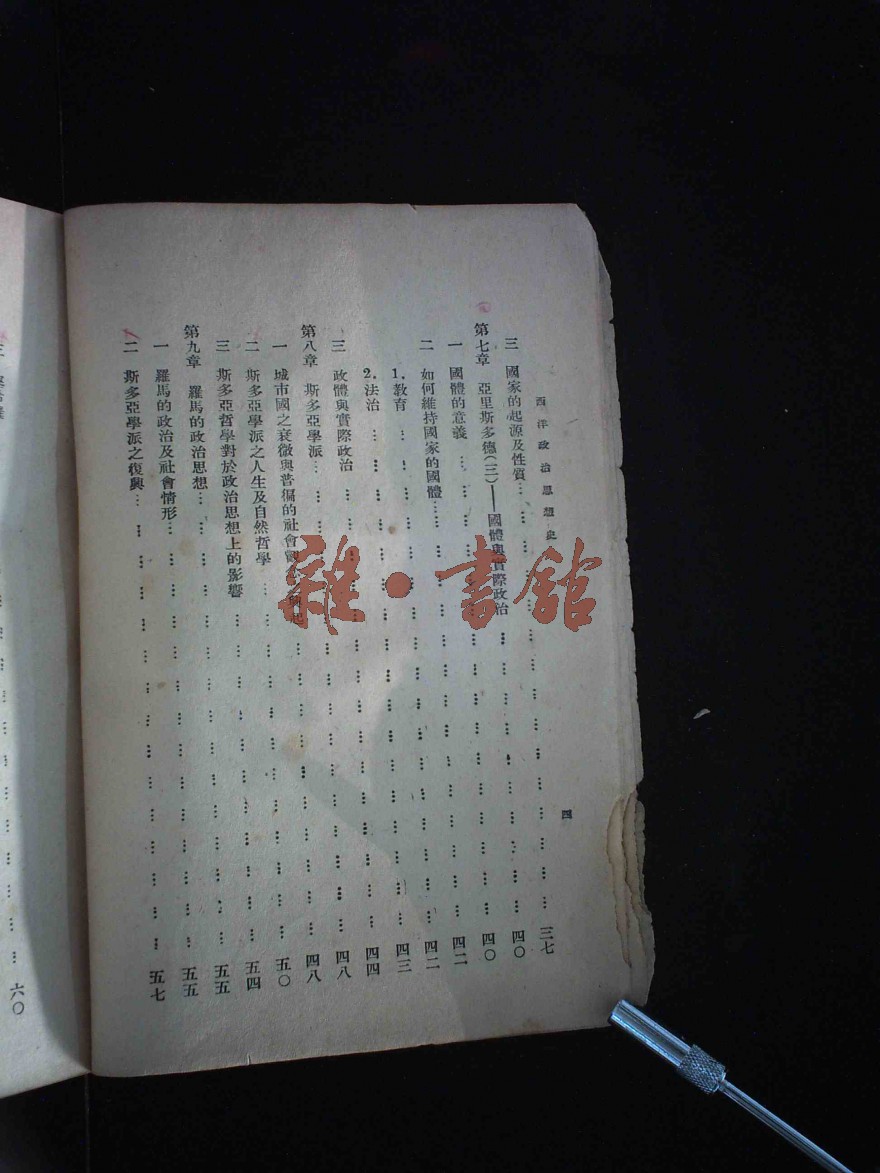 西洋政治思想史 四
三 國家的起源及性質…………三七
第七章 亞里斯多德(三)——國體與實際政治…………四〇
一 國體的意義…………四〇
二 如何維持國家的國體…………四二
1.教育…………四二
2.法治…………四三
三 政體與實際政治…………四四
第八章 斯多亞學派…………四八
一 城市國之衰微與普徧的社會觀 起…………四八
二 斯多亞學派之人生及自然哲學…………五〇
三 斯多亞哲學對於政治思想上的影響…………五四
第九章 羅馬的政治思想…………五五
一 羅馬的政治及社會情形…………五五
二 斯多亞學派之復興…………五七
三 …………六〇
雜·書館